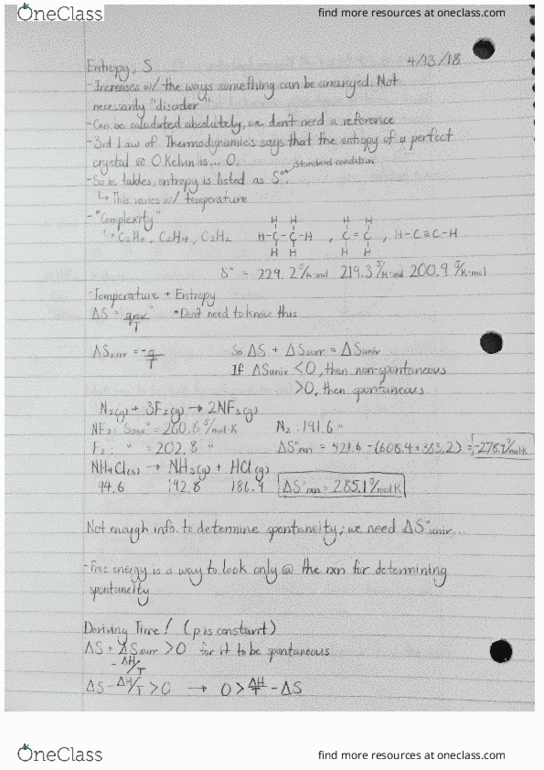 OneClass
find more resources at oneclass.com
4/13/18
Entropy, S
- Increases w/ the ways something can be arranged. Not
necessarily "disorder"
- Can be calculated absolutely, we don't need a reference
- 3rd Law of Thermodynamics says that the entropy of a perfect
crystal @ 0 Kelvin is... 0.
- So in tables, entropy is listed as S° Standard condition
↳ This varies w/ temperature
- "Complexity"
↳ C₂H₆, C₂H₄, C₂H₂
H H H H
H-C-C-H , C=C , H-C≡C-H
H H H H
S° = 229.2 J/K·mol 219.3 J/K·mol 200.9 J/K·mol
- Temperature + Entropy
ΔS = /T *Don't need to know this
ΔSsurr = -q/T So ΔS + ΔSsurr = ΔSuniv
If ΔSuniv <0, then non-spontaneous
>0, then spontaneous
N₂(g) + 3F₂(g) → 2NF₃(g)
NF₃: = 260.8 J/mol·K N₂: 191.6 "
F₂: " = 202.8 " ΔS°rxn = 521.6 - (608.4 + ) =
NH₄Cl(s) → NH₃(g) + HCl(g)
94.6 192.8 186.9 ΔS°rxn = 285.1 J/mol·K
Not enough info. to determine spontaneity; we need ΔS°univ...
- Free energy is a way to look only @ the rxn for determining
spontaneity
Deriving Time! (p is constant)
ΔS + ΔSsurr >0 for it to be spontaneous
-ΔH/T
ΔS - ΔH/T >0 → 0 > ΔH/T - ΔS
OneClass
find more resources at oneclass.com